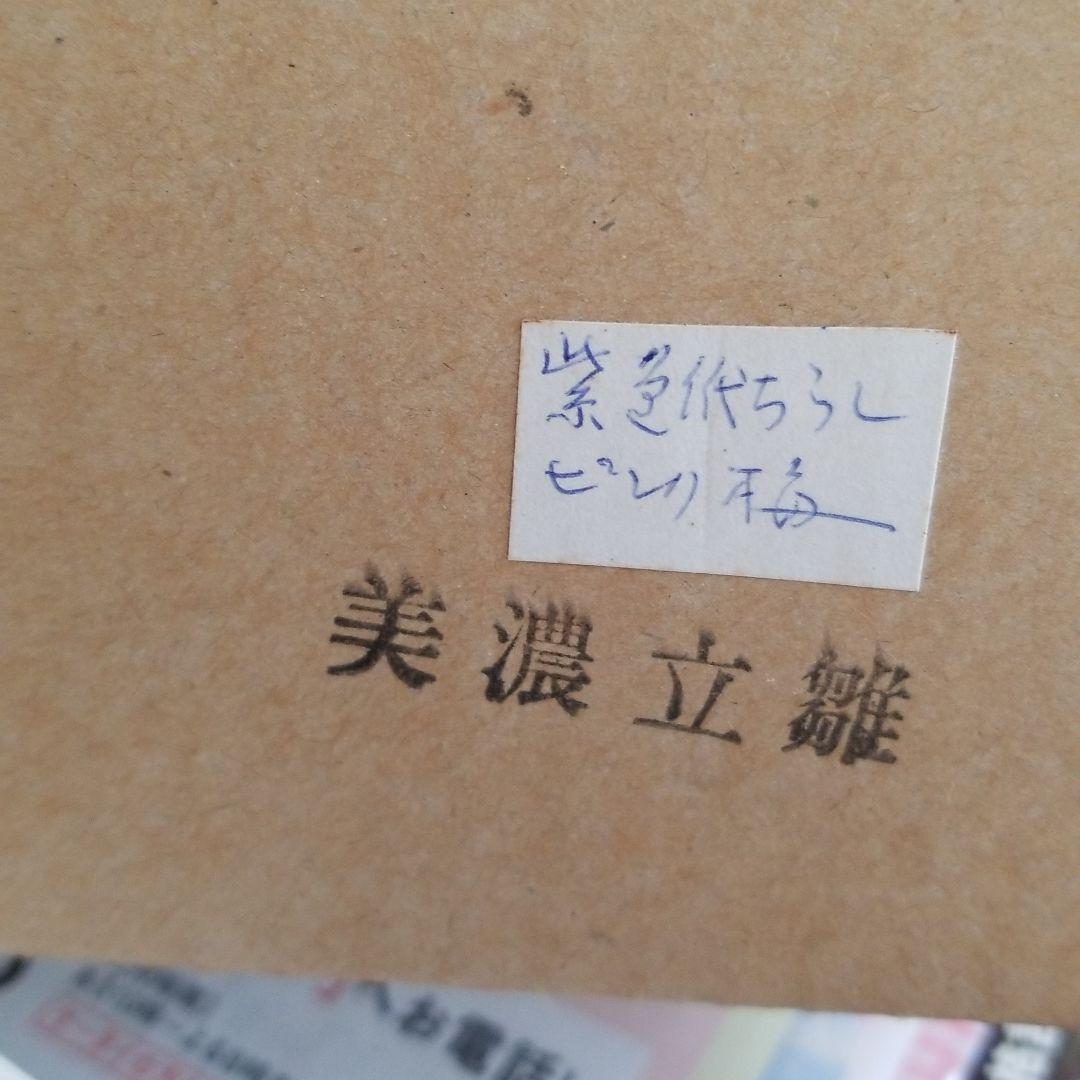 紫色代ちらし
ピンク梅
美濃立雛
へお電話